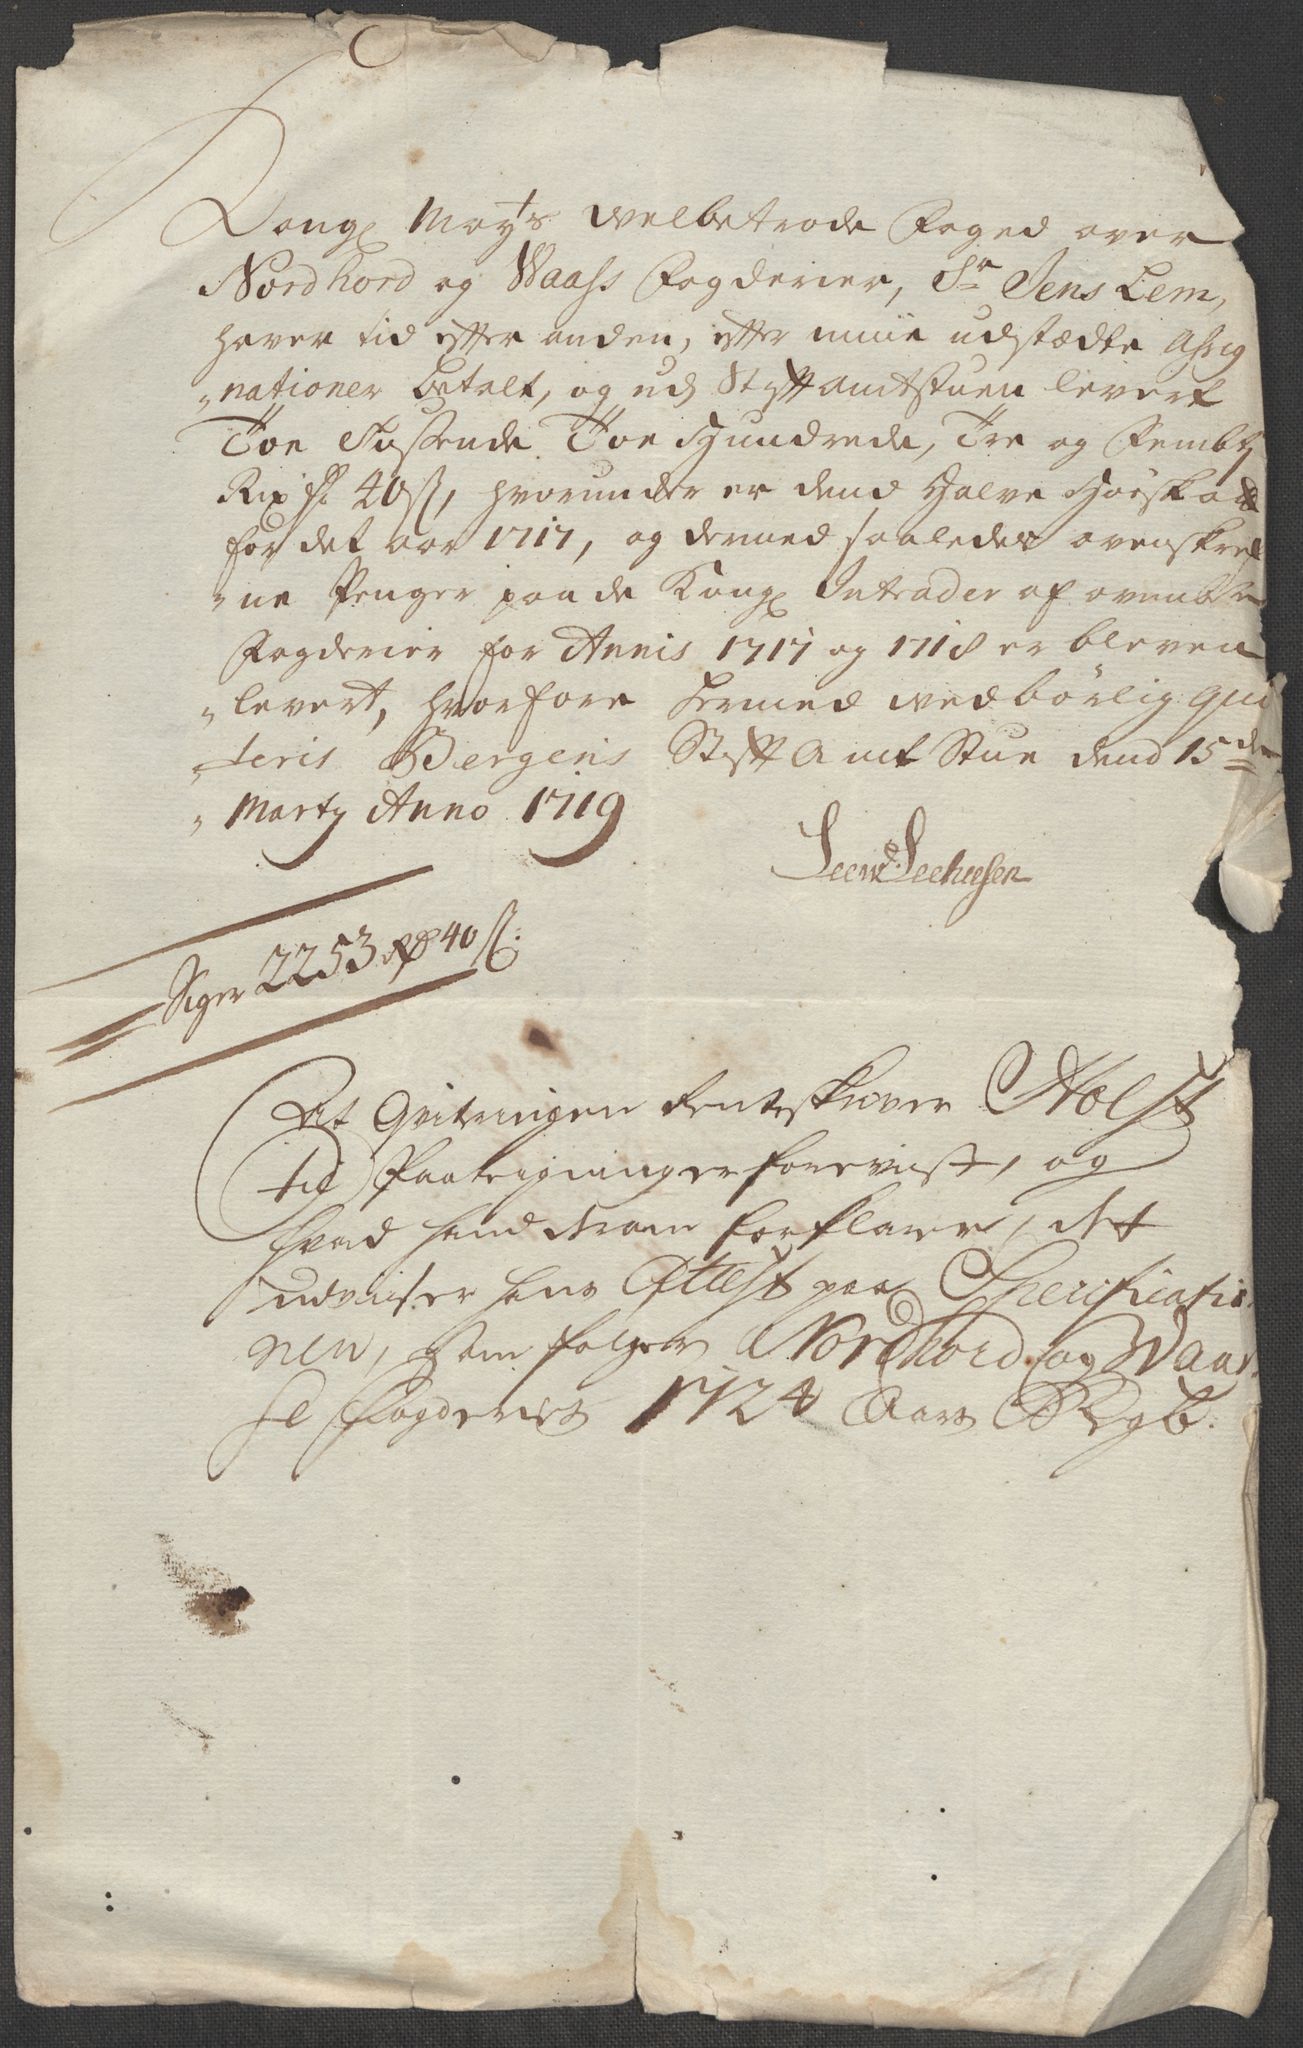 Kongl. May.ts velbetrode Foged over
Nordhord og Waass Fogderier, Sr. Jens Lem,
haver tid efter anden, efter mine udstædte Assig
„nationer betalt, og ud Stifftamtstuen levert
Toe Tussende Toe Hundrede, Tre og Fembty
Rixdl. 40 ß, hvorunder er dend Halve Hoeskatt
for det aar 1717, og dermed saaledes ovenskref
„ne Penger paa de Kongl. Intrader af ovenbte.
Fogderier for Annis 1717 og 1718 er bleven
„levert, hvorfore hermed vedbørlig qui
„teris Bergens Stifft Amt Stue dend 15den
„Marty Anno 1719
Leew
Siger 2253 Rdr 40 ß:
At Qviteringen Renteskriver Holst
til Paategninger forevist, og
hvad hand derom forklarer, det
udviser hans Attest paa Specificatio
nen, som følger Nordhord og Waas
se Fogderies 1724 Aars Regb.